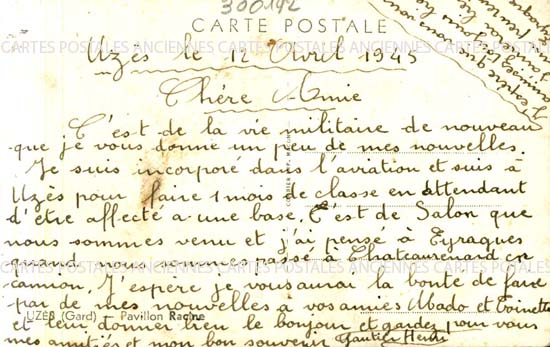 300192
CARTE POSTALE
CARTES POSTALES ANCIENNES CARTES POSTALES ANCIENNES
Uzès le 12 Avril 1945
Chére Amie
C'est de la vie militaire de nouveau
que je vous donne un peu de mes nouvelles.
Je suis incorporé dans l'aviation et suis à
Uzès pour faire 1 mois de classe en attendant
d'être affecté a une base. C'est de Salon que
nous sommes venu et j'ai pensé à Eyragues
quand nous sommes passé à Chateaurenard en
camion. J'espère je vous aurai la bonté de faire
par de mes nouvelles a vos amies Mado et Toinette
UZÈS (Gard) - Pavillon Racine
et leur donner bien le bonjour et gardez pour vous
mes amitiés et mon bon souvenir Gautier Henri